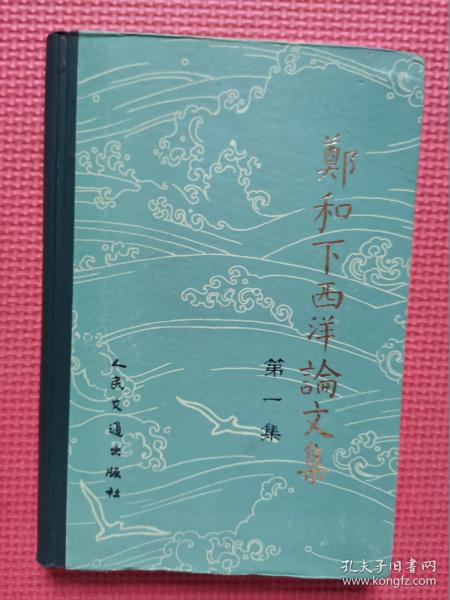 鄭和下西洋論文集
第一集
人民交通出版社
孔夫子旧书网
www.kongfz.com